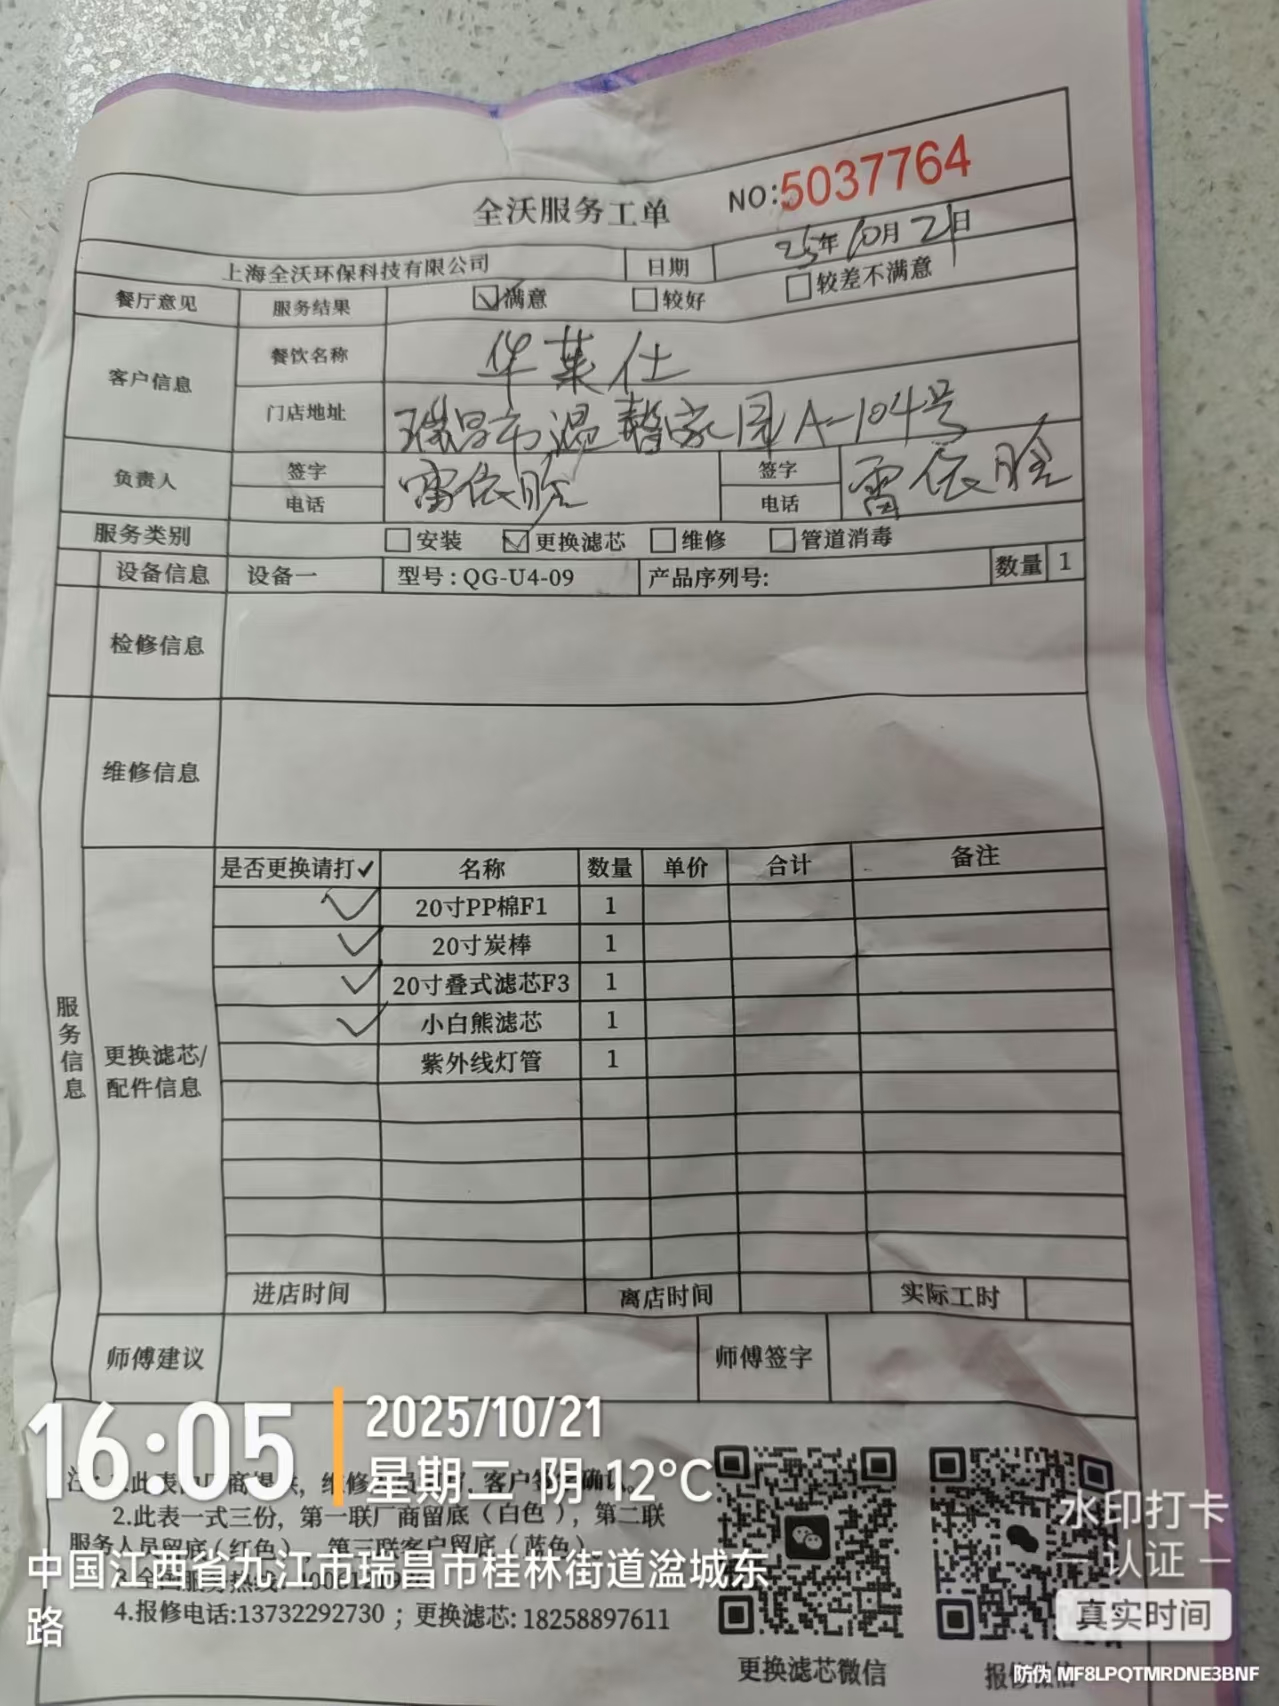 全沃服务工单
NO:5037764
上海全沃环保科技有限公司 日期 25年10月21日
餐厅意见 服务结果 满意 较好 较差不满意
客户信息 餐饮名称 华莱仕
门店地址 瑞昌市温馨家园A-104号
负责人 签字 雷依晗 签字 雷依晗
电话 电话
服务类别 安装 更换滤芯 维修 管道消毒
设备信息 设备一 型号:QG-U4-09 产品序列号: 数量 1
检修信息
维修信息
服务信息
更换滤芯/
配件信息
是否更换请打✓ 名称 数量 单价 合计 备注
✓ 20寸PP棉F1 1
✓ 20寸炭棒 1
✓ 20寸叠式滤芯F3 1
✓ 小白熊滤芯 1
紫外线灯管 1
进店时间 离店时间 实际工时
师傅建议 师傅签字
16:05
2025/10/21
星期二 阴 12°C
注: 1.此表由厂商提供, 维修 客户 确认
2.此表一式三份, 第一联厂商留底(白色), 第二联
服务人员留底(红色) 第三联客户留底(蓝色)
中国江西省九江市瑞昌市桂林街道湓城东
路
4.报修电话:13732292730 ; 更换滤芯: 18258897611
更换滤芯微信
报修微信
水印打卡
认证
真实时间
防伪 MF8LPQTMRDNE3BNF